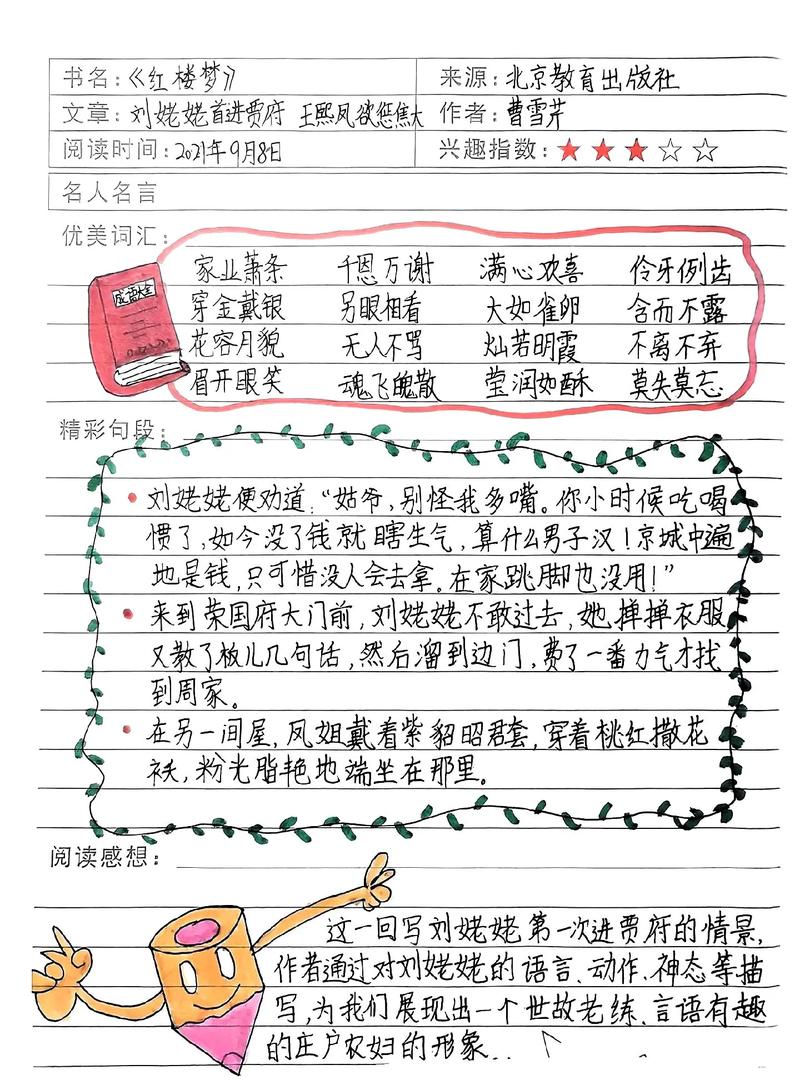 书名：《红楼梦》 来源：北京教育出版社
文章：刘姥姥首进贾府 王熙凤欲惩焦大 作者：曹雪芹
阅读时间：2021年9月8日 兴趣指数：★★★☆☆
名人名言
优美词汇：
成语大全
家业萧条 千恩万谢 满心欢喜 伶牙俐齿
穿金戴银 另眼相看 大如雀卵 含而不露
花容月貌 无人不骂 灿若明霞 不离不弃
眉开眼笑 魂飞魄散 莹润如酥 莫失莫忘
精彩句段：
刘姥姥便劝道：“姑爷，别怪我多嘴。你小时候吃喝
惯了，如今没了钱就瞎生气，算什么男子汉！京城中遍
地是钱，只可惜没人会去拿。在家跳脚也没用！”
来到荣国府大门前，刘姥姥不敢过去，她掸掸衣服，
又教了板儿几句话，然后溜到边门，费了一番力气才找
到周家。
在另一间屋，凤姐戴着紫貂昭君套，穿着桃红撒花
袄，粉光脂艳地端坐在那里。
阅读感想：
这一回写刘姥姥第一次进贾府的情景，
作者通过对刘姥姥的语言、动作、神态等描
写，为我们展现出一个世故老练、言语有趣
的庄户农妇的形象...